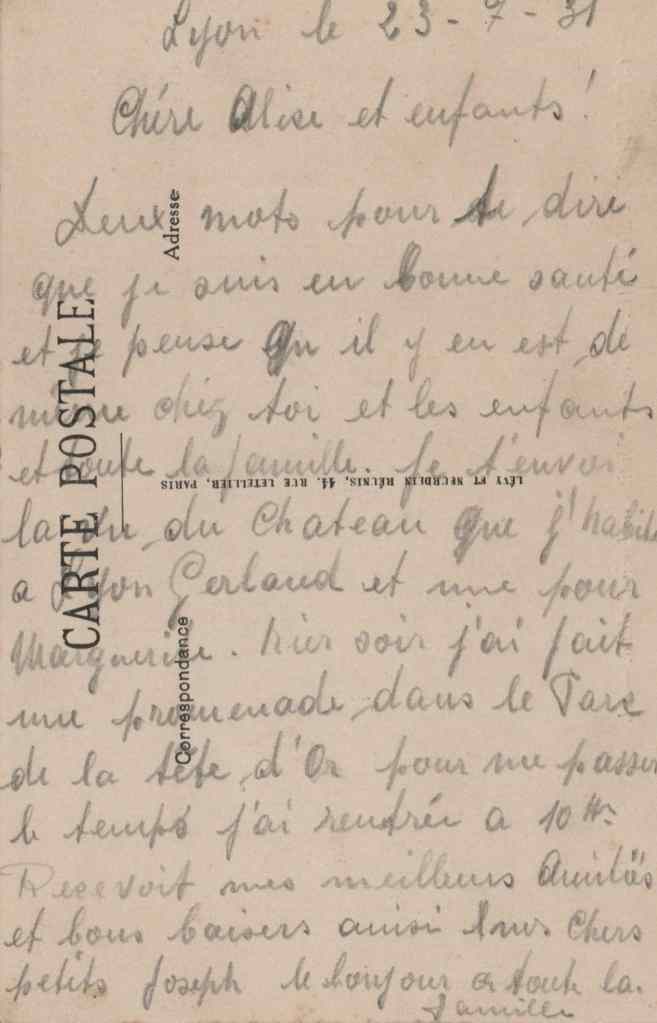 Lyon le 23-7-31
Chére Alise et enfants!
Deux mots pour te dire
que je suis en bonne santé
et je pense qu il y en est de
même chez toi et les enfants
et toute la famille. Je t'envoi
la vue du Chateau que j'habite
a Lyon Gerland et une pour
Marguerite. hier soir j'ai fait
une promenade dans le Parc
de la tête d'Or pour me passer
le temps j'ai rentrée a 10 Hrs
Recevoit mes meilleurs Amitiés
et bons baisers ainsi Chers
petits Joseph le bonjour a toute la
famille
CARTE POSTALE
Correspondance
Adresse
LÉVY ET NEURDEIN RÉUNIS, 44. RUE LETELLIER, PARIS